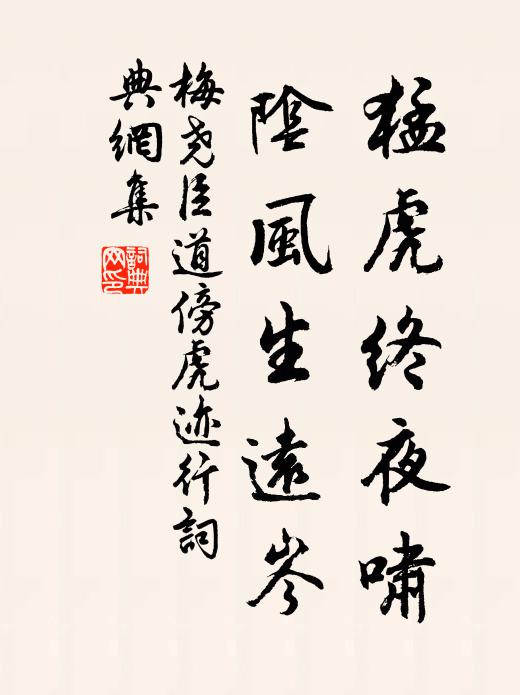 猛虎終夜嘯
陰風生遠岑
梅尧臣道傍虎迹行詞
典網集
詞典網印